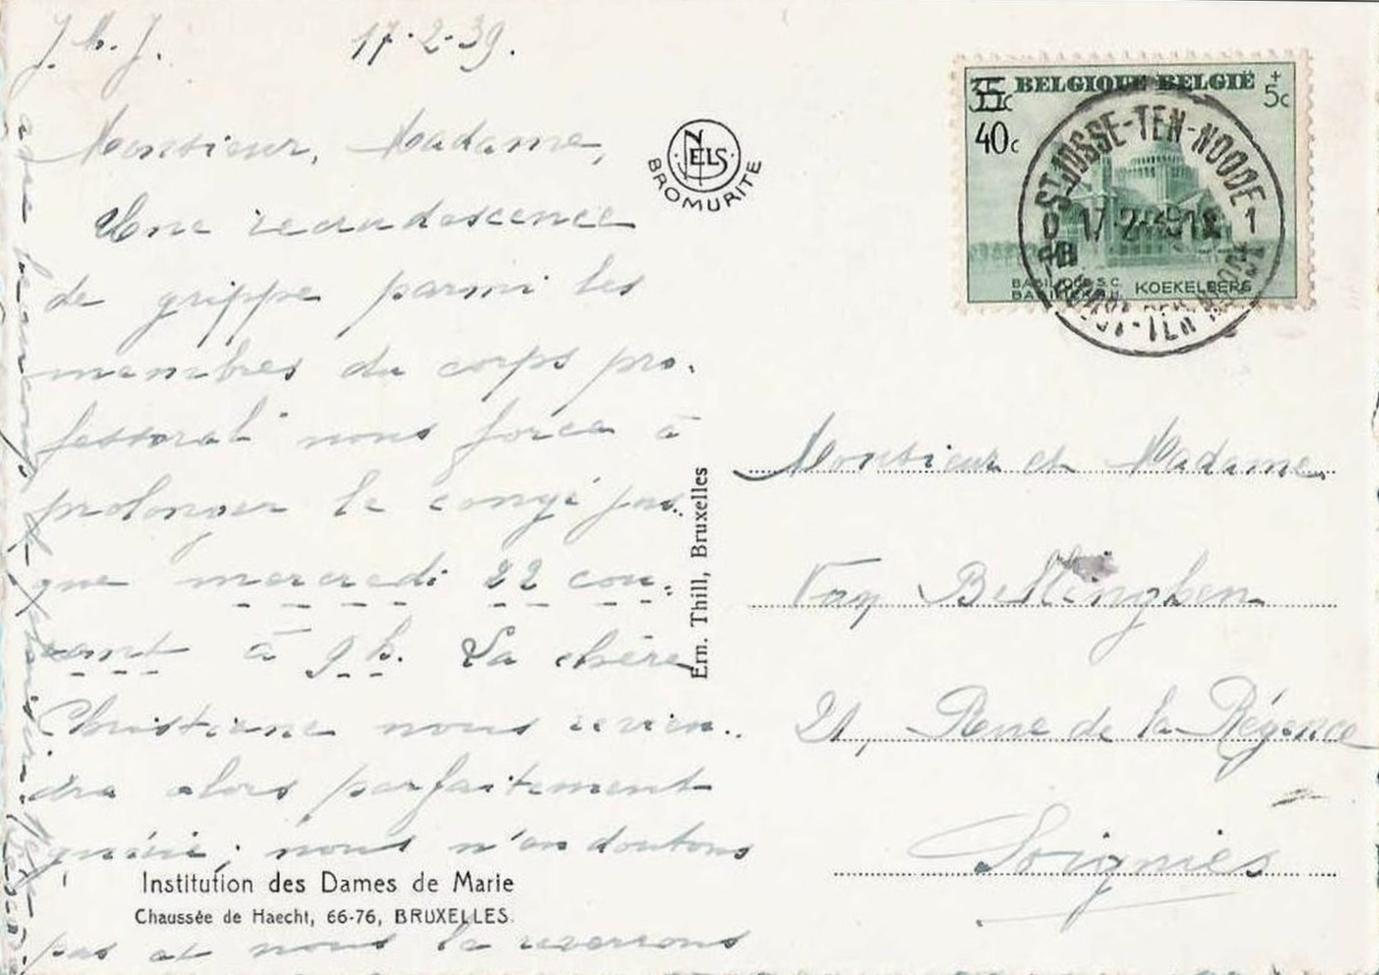 J. M. J. 17-2-39.
Monsieur, Madame,
Une recrudescence
de grippe parmi les
membres du corps pro-
fessoral nous force à
prolonger le congé jus-
que mercredi 22 cou-
rant à 9 h. La chère
Christiane nous revien-
dra alors parfaitement
guérie; nous n'en doutons
pas et nous la reverrons
avec beaucoup de plaisir.
Institution des Dames de Marie
Chaussée de Haecht, 66-76, BRUXELLES.
NELS
BROMURITE
Ern. Thill, Bruxelles
35c BELGIQUE BELGIË + 5c
40c
ST JOSSE-TEN-NOODE
1
17-2-39
BASILIQUE S.C. KOEKELBERG
Monsieur et Madame
Van Bellinghen
21, Rue de la Régence
Soignies